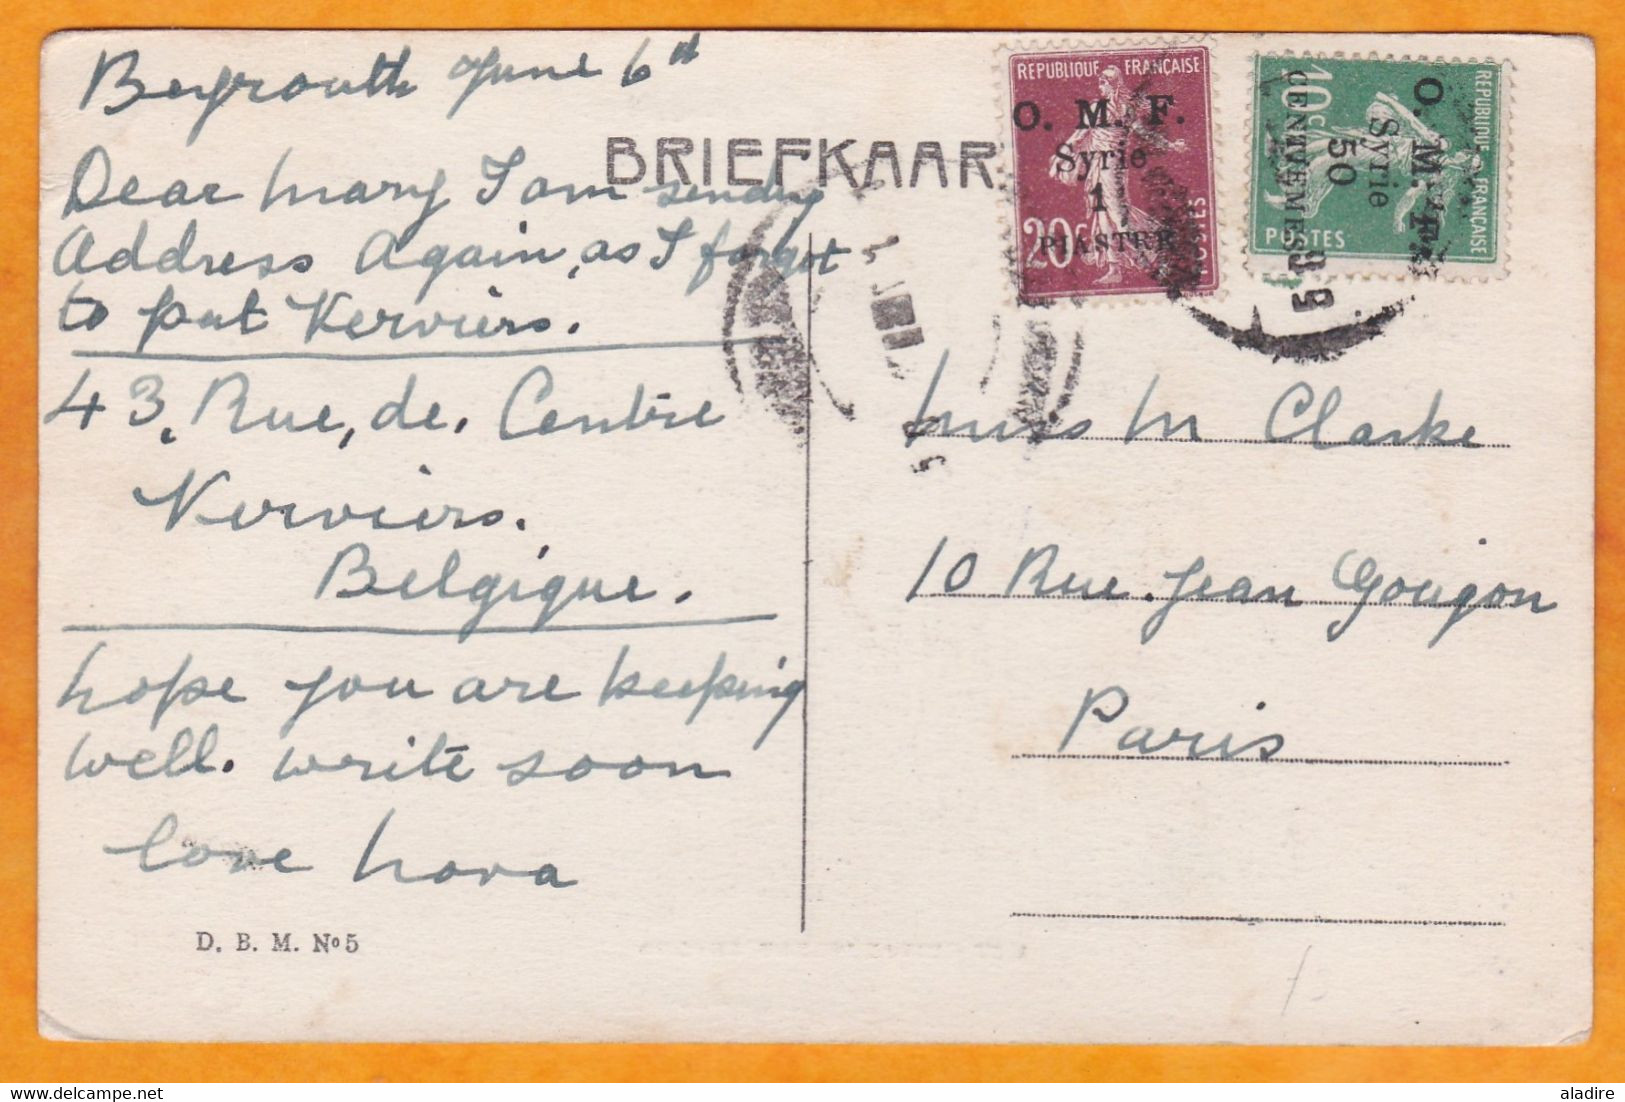 Beyrouth June 6th
Dear Mary I am sending
Address Again, as I forgot
to put Verviers.
43, Rue, de. Centre
Verviers.
Belgique.
hope you are keeping
well. write soon
love Nora
D. B. M. No 5
BRIEFKAAR
REPUBLIQUE FRANÇAISE
O. M. F.
Syrie
1
PIASTRE
20c
POSTES
REPUBLIQUE FRANÇAISE
O. M. F.
Syrie
50
CENTIEMES
10c
POSTES
Miss M Clarke
10 Rue. Jean Gougon
Paris
aladire